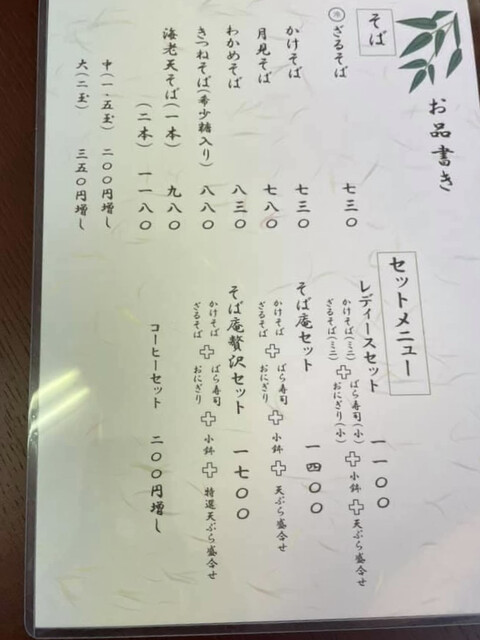 お品書き
そば
冷 ざるそば 七三〇
かけそば 七三〇
月見そば 七八〇
わかめそば 八三〇
きつねそば(希少糖入り) 八八〇
海老天そば(一本) 九八〇
(二本) 一一八〇
中(一.五玉) 二〇〇円増し
大(二玉) 三五〇円増し
セットメニュー
レディースセット 一一〇〇
かけそば(ミニ) ばら寿司(小)
ざるそば(ミニ) + おにぎり(小) + 小鉢 + 天ぷら盛合せ
そば庵セット 一四〇〇
かけそば ばら寿司
ざるそば + おにぎり + 小鉢 + 天ぷら盛合せ
そば庵贅沢セット 一七〇〇
かけそば ばら寿司
ざるそば + おにぎり + 小鉢 + 特選天ぷら盛合せ
コーヒーセット 二〇〇円増し